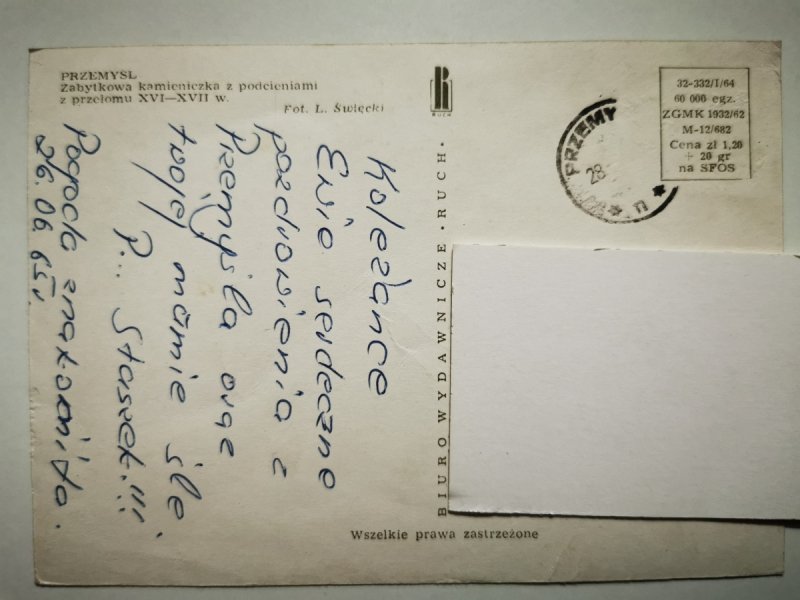 PRZEMYŚL
Zabytkowa kamieniczka z podcieniami
z przełomu XVI—XVII w.
Fot. L. Święcki
RUCH
32-332/I/64
60 000 egz.
ZGMK 1932/62
M-12/682
Cena zł 1,20
+ 20 gr
na SFOS
PRZEMY
28
Koleżance
Ewie serdeczne
pozdrowienia z
Przemyśla oraz
twojej mamie śle
P... Staszek!!!
Pogoda znakomita.
26.06.65r.
BIURO WYDAWNICZE · RUCH ·
Wszelkie prawa zastrzeżone